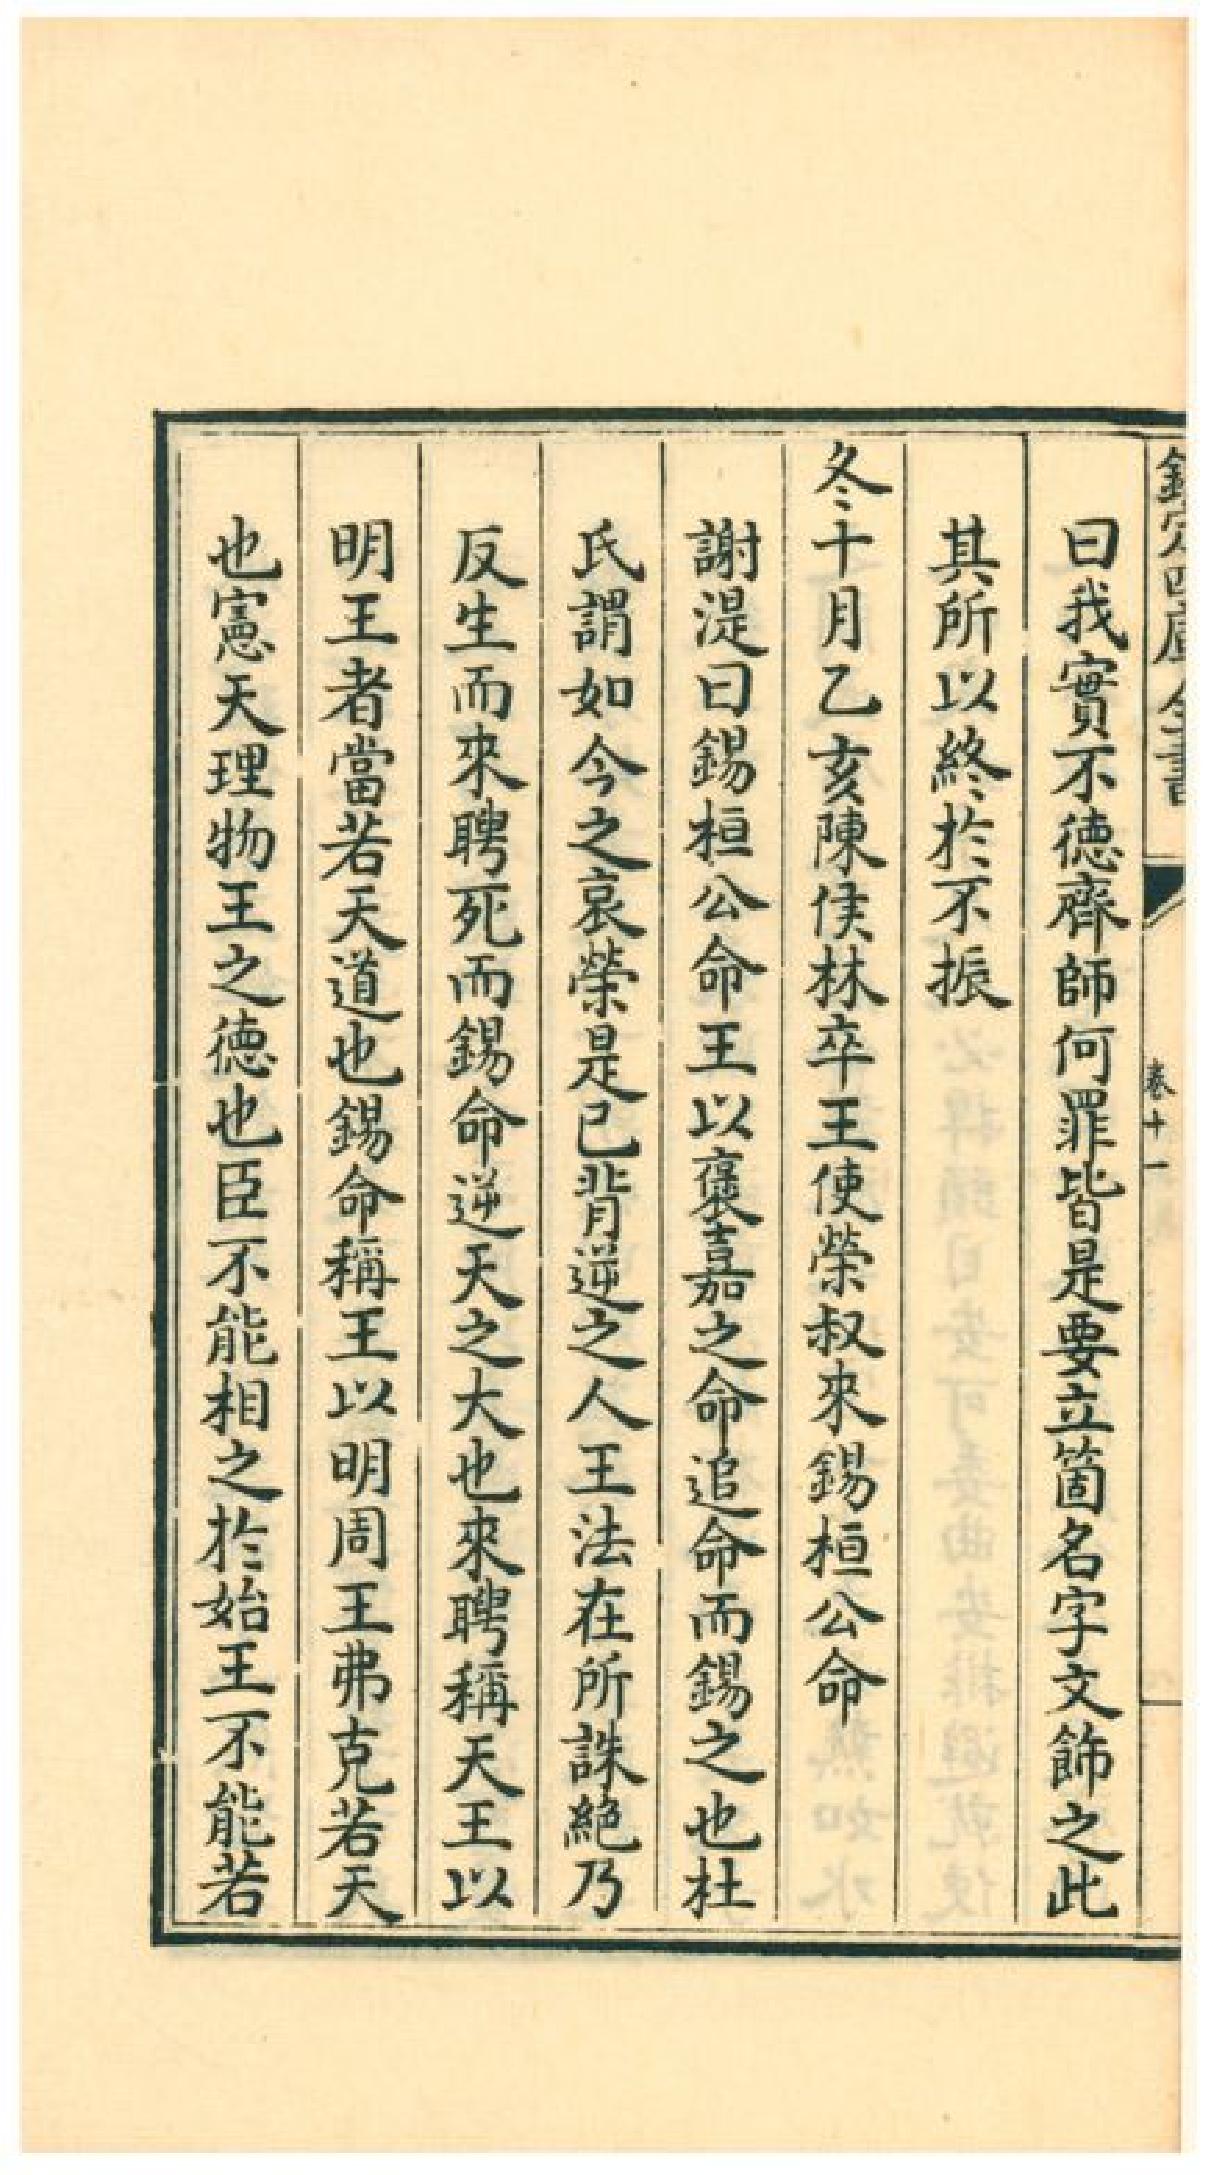 欽定四庫全書
卷十一
曰我實不德齊師何罪皆是要立箇名字文飾之此
其所以終於不振
冬十月乙亥陳侯林卒王使榮叔來錫桓公命
謝湜曰錫桓公命王以褒嘉之命追命而錫之也杜
氏謂如今之哀榮是已背逆之人王法在所誅絕乃
反生而來聘死而錫命逆天之大也來聘稱天王以
明王者當若天道也錫命稱王以明周王弗克若天
也憲天理物王之德也臣不能相之於始王不能若